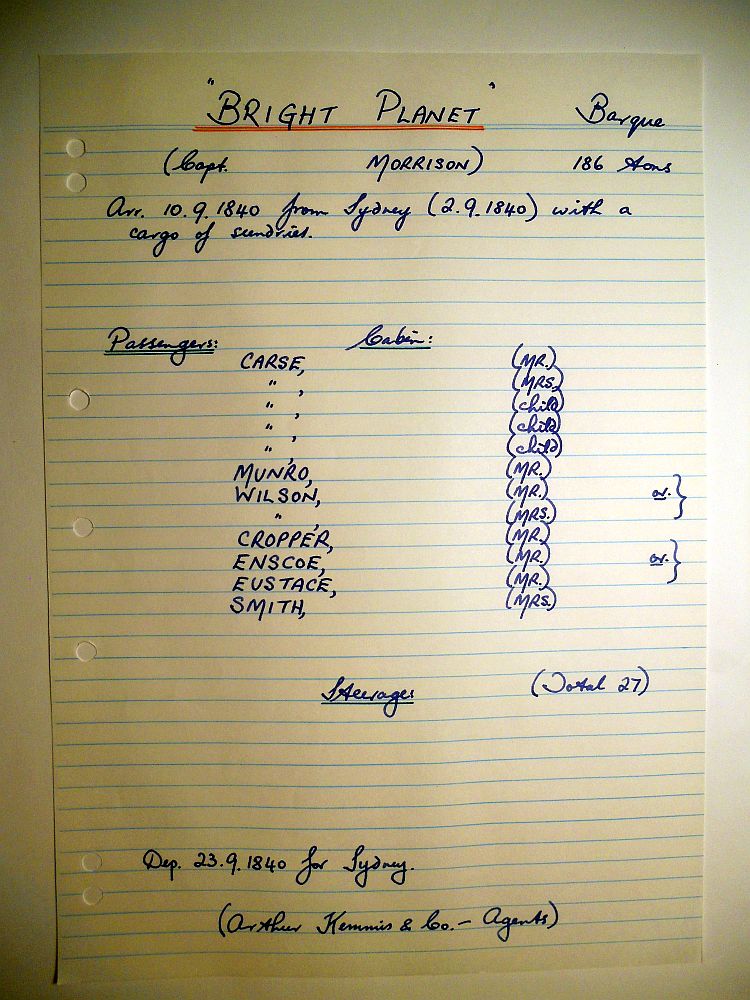 "BRIGHT PLANET" Barque
(Capt. MORRISON) 186 tons
Arr. 10.9.1840 from Sydney (2.9.1840) with a
cargo of sundries.
Passengers: Cabin:
CARSE, (MR.)
" , (MRS.)
" , (child)
" , (child)
" , (child)
MUNRO, (MR.)
WILSON, (MR.) or. }
" , (MRS.)
CROPPER, (MR.)
ENSCOE, (MR.) or. }
EUSTACE, (MR.)
SMITH, (MRS.)
Steerage (Total 27)
Dep. 23.9.1840 for Sydney.
(Arthur Kemmis & Co. - Agents)